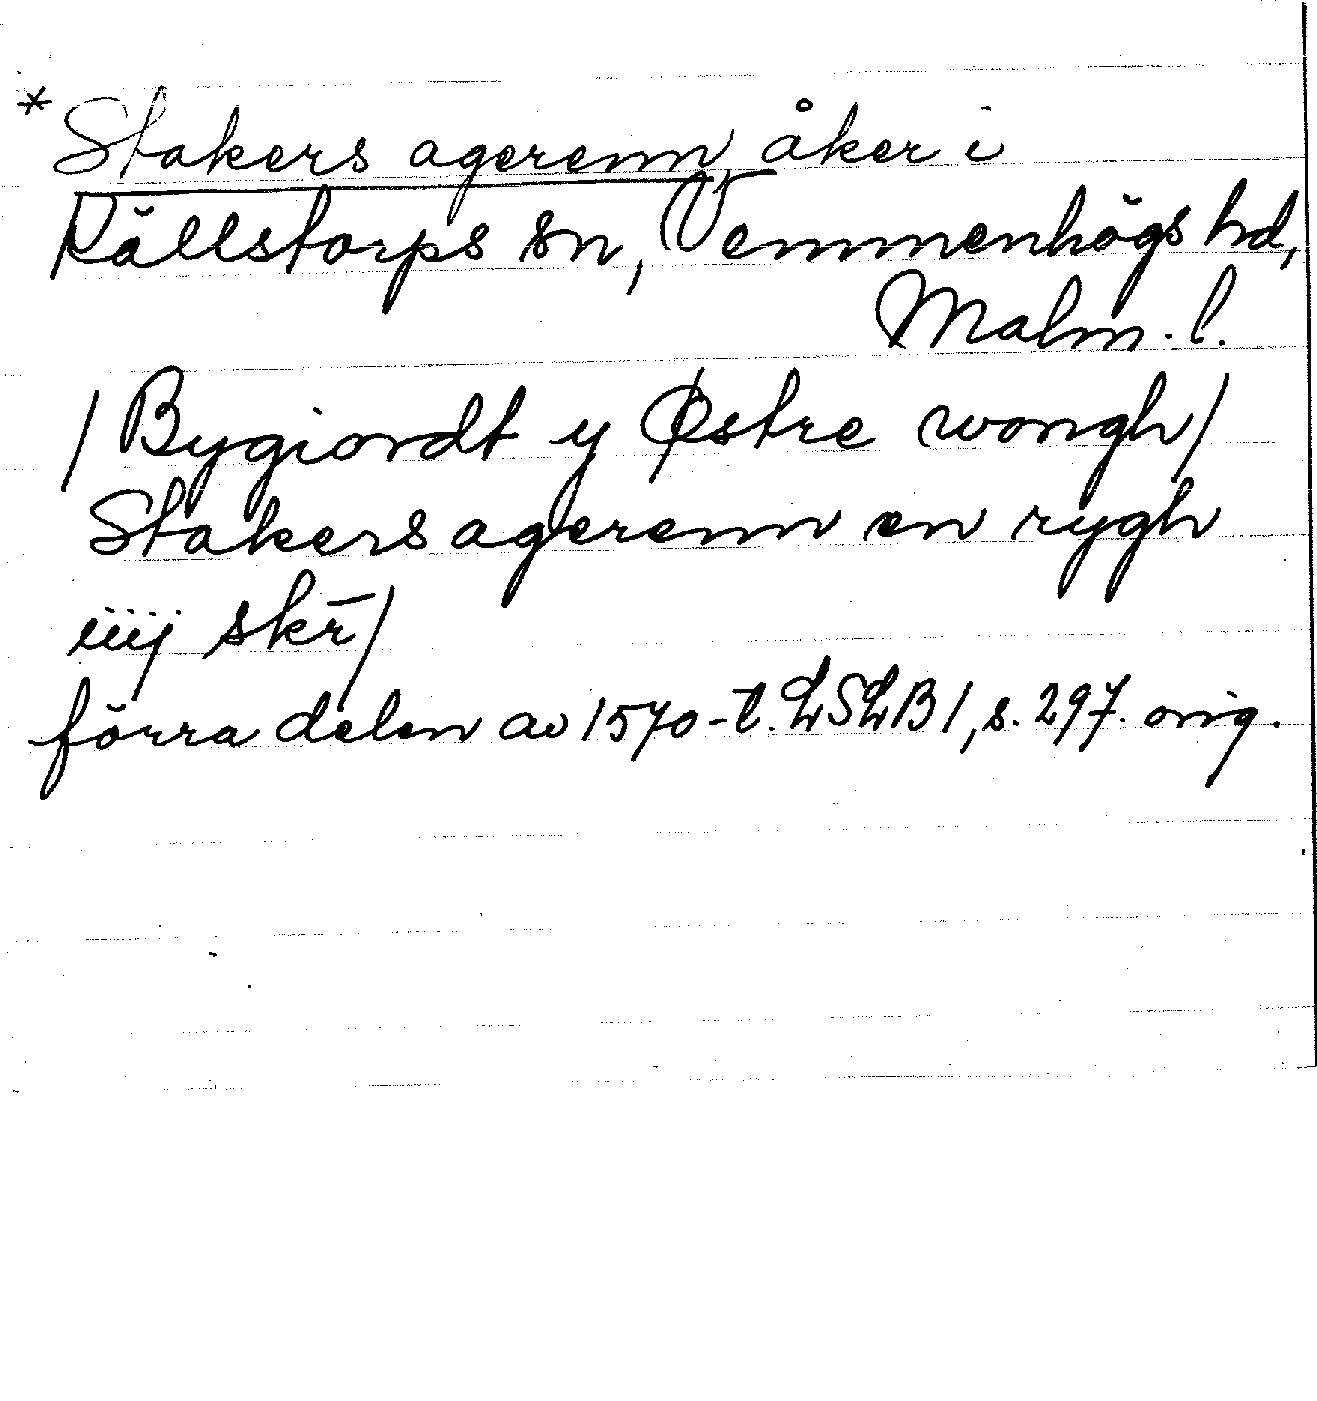 * Stakers agerenn, åker i
Källstorps sn, Vemmenhögs hd,
Malm. l.
/Bygiordt y Østre wongh/
Stakers agerenn en rygh
iiij skr̄/
förra delen av 1570-t. LSLB 1, s. 297. orig.